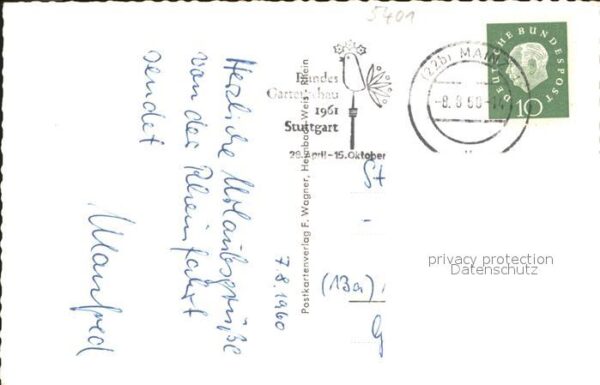 5401
Bundes
Gartenschau
1961
Stuttgart
28. April-15. Oktober
(22b) MAINZ
-8.8.60-14
DEUTSCHE BUNDESPOST
10
Herzliche Urlaubsgrüße
von der Rheinfahrt
sendet
Manfred
7.8.1960
Postkartenverlag F. Wagner, Heimbach-Weis / Rhein
(13a)
privacy protection
Datenschutz